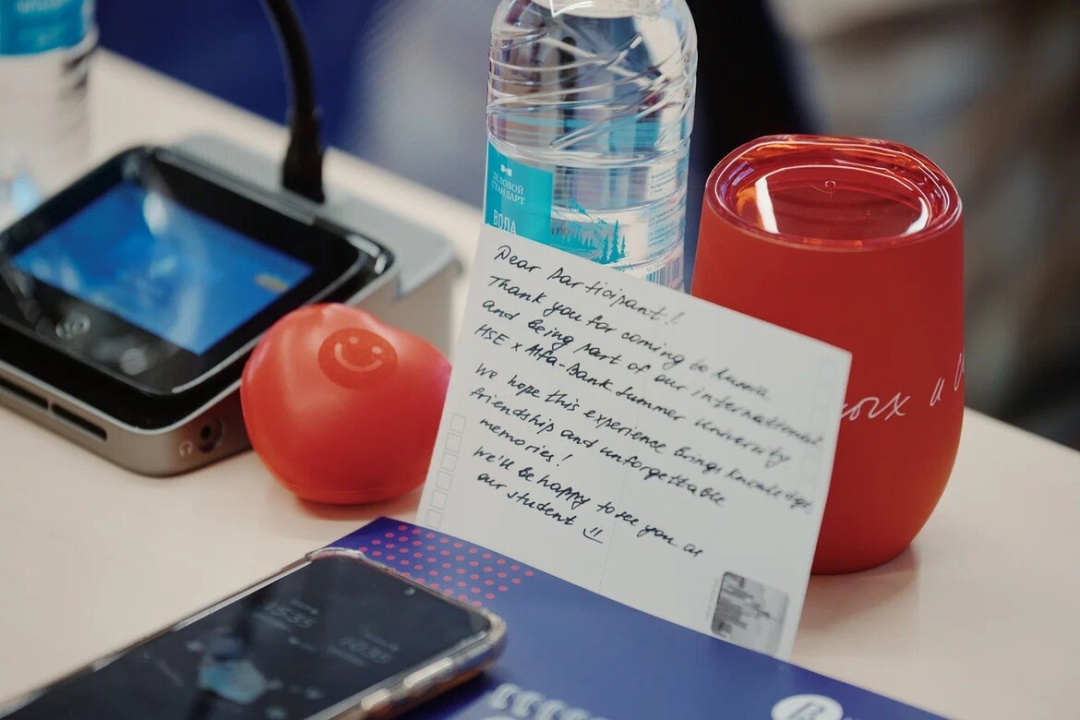 ДЕЛОВОЙ
СТАНДАРТ
ВОДА
Dear participant!
Thank you for coming to Russia
and being part of our international
HSE x Alfa-Bank Summer University
We hope this experience brings knowledge,
friendship and unforgettable
memories!
We'll be happy to see you as
our student
15:35
10:35